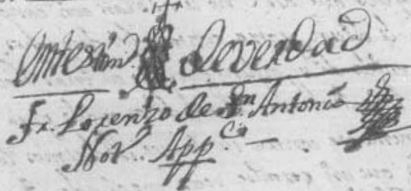 En testimo deverdad
Fr. Lorenzo de Sn Antonio
Not. Appco